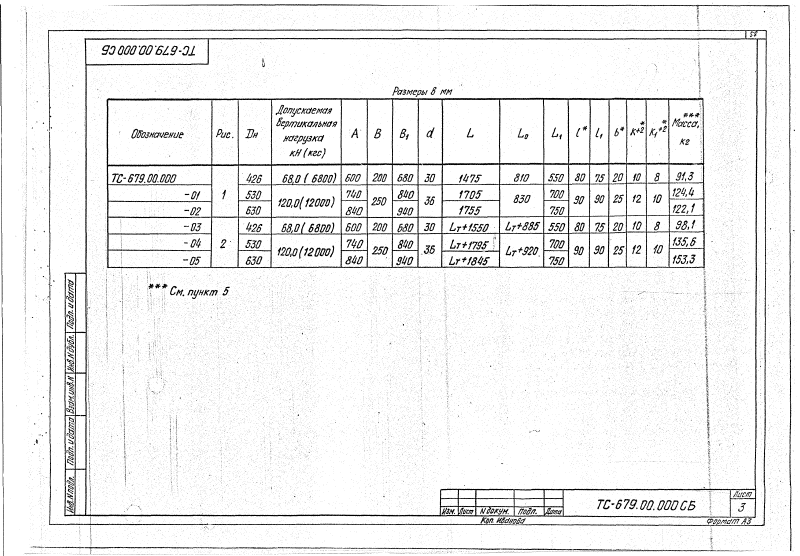 58
ТС-679.00.000 СБ
Размеры в мм
Обозначение Рис. Dн Допускаемая вертикальная нагрузка кН (кгс) A B B₁ d L L₀ L₁ l* l₁ b* K+2* K₁+2* Масса,*** кг
ТС-679.00.000 1 426 68,0 (6800) 600 200 680 30 1475 810 550 80 75 20 10 8 91,3
-01 530 120,0 (12000) 740 250 840 36 1705 830 700 90 90 25 12 10 124,4
-02 630 840 940 1755 750 122,1
-03 2 426 68,0 (6800) 600 200 680 30 Lт+1550 Lт+885 550 80 75 20 10 8 98,1
-04 530 120,0 (12000) 740 250 840 36 Lт+1795 Lт+920 700 90 90 25 12 10 135,6
-05 630 840 940 Lт+1845 750 153,3
*** См. пункт 5
Подп. и дата
Инв.N дубл.
Взам.инв.N
Подп. и дата
Инв.N подл.
Изм. Лист N докум. Подп. Дата
ТС-679.00.000 СБ
Лист
3
Коп. Иванова
Формат А3